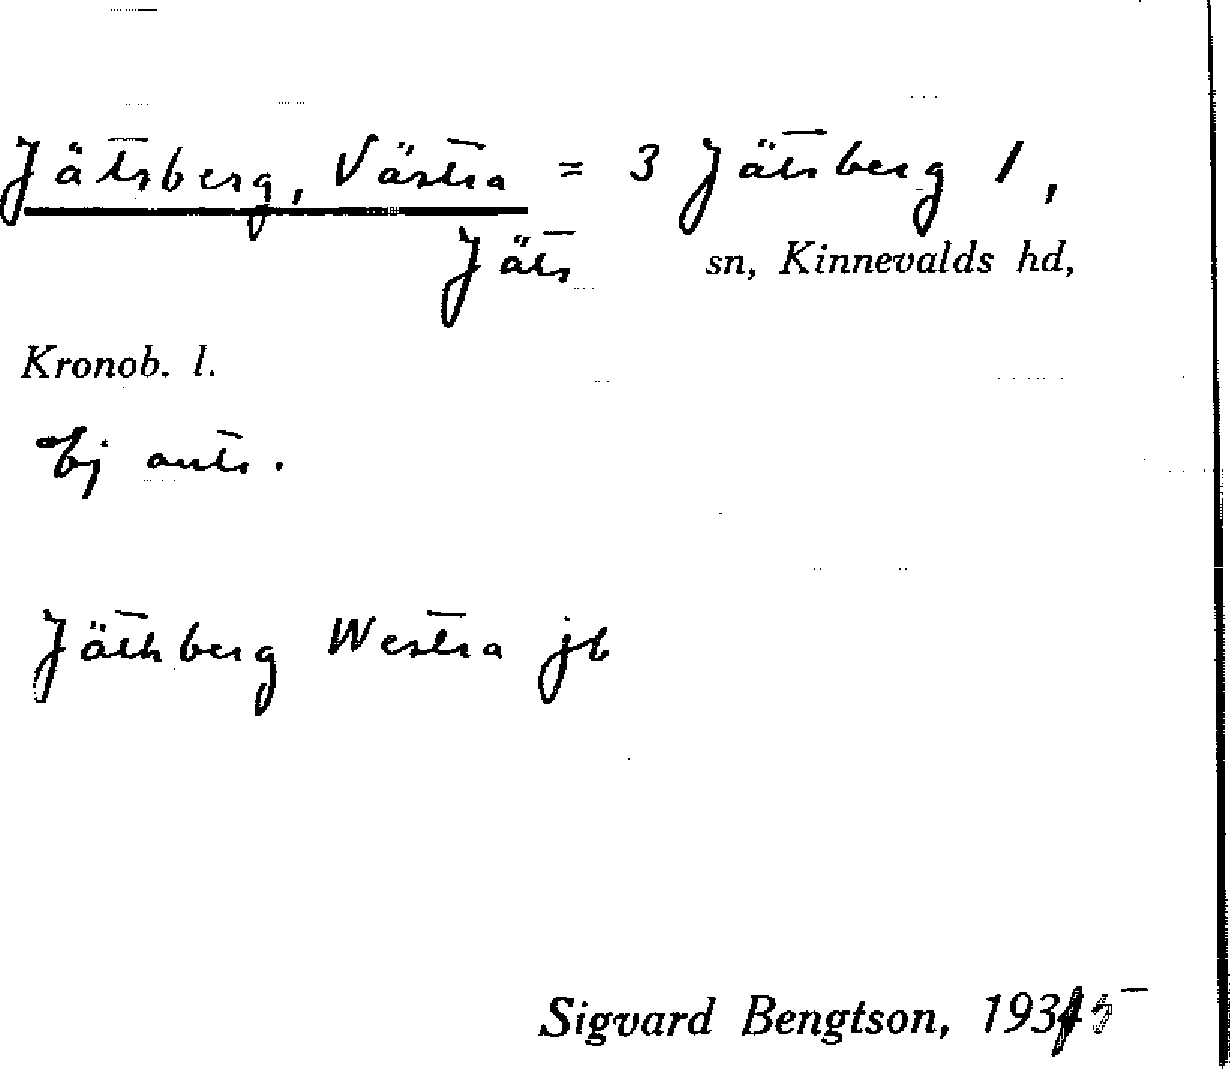 Jätsberg, Västra = 3 Jätsberg 1,
Jäts sn, Kinnevalds hd,
Kronob. l.
Ej ants.
Jäthberg Westra jb
Sigvard Bengtson, 1935